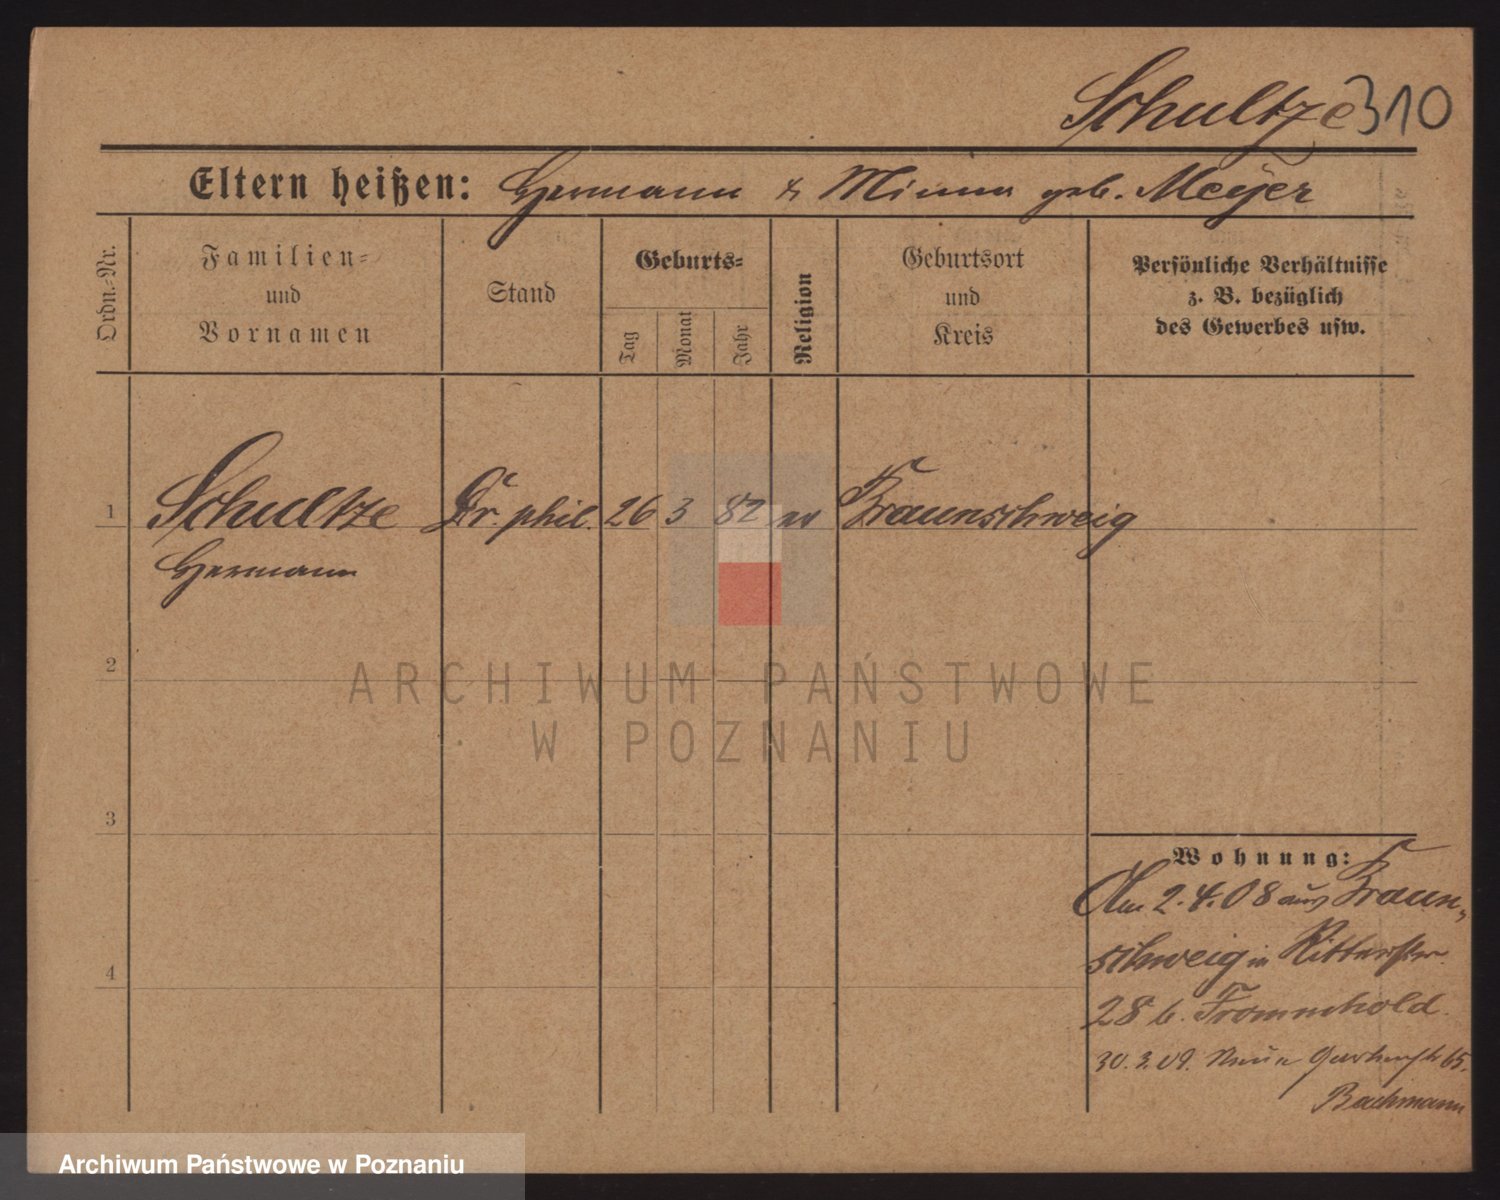 Schultze 310
Eltern heißen: Hermann & Minna geb. Meyer
Ordn.-Nr.
Familien-
und
Vornamen
Stand
Geburts-
Tag
Monat
Jahr
Religion
Geburtsort
und
Kreis
Persönliche Verhältnisse
z. B. bezüglich
des Gewerbes usw.
1 Schultze Dr. phil. 26 3 82 ev Braunschweig
Hermann
2
3
4
Wohnung:
Am 2.4.08 aus Braun-
schweig in Ritterstr.
28 b. Frommhold.
30.3.09. Neue Gartenstr 65.
Bachmann
ARCHIWUM PAŃSTWOWE
W POZNANIU
Archiwum Państwowe w Poznaniu